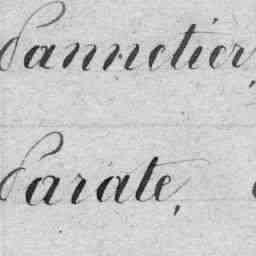 Pannetier,
Parate,